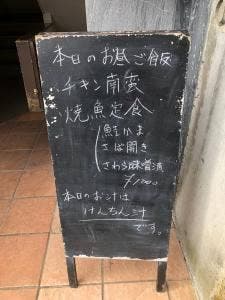 本日のお昼ご飯
チキン南蛮
焼魚定食
鮭かま
さば開き
さわら味噌漬
¥1000.
本日のお汁は
けんちん汁
です。